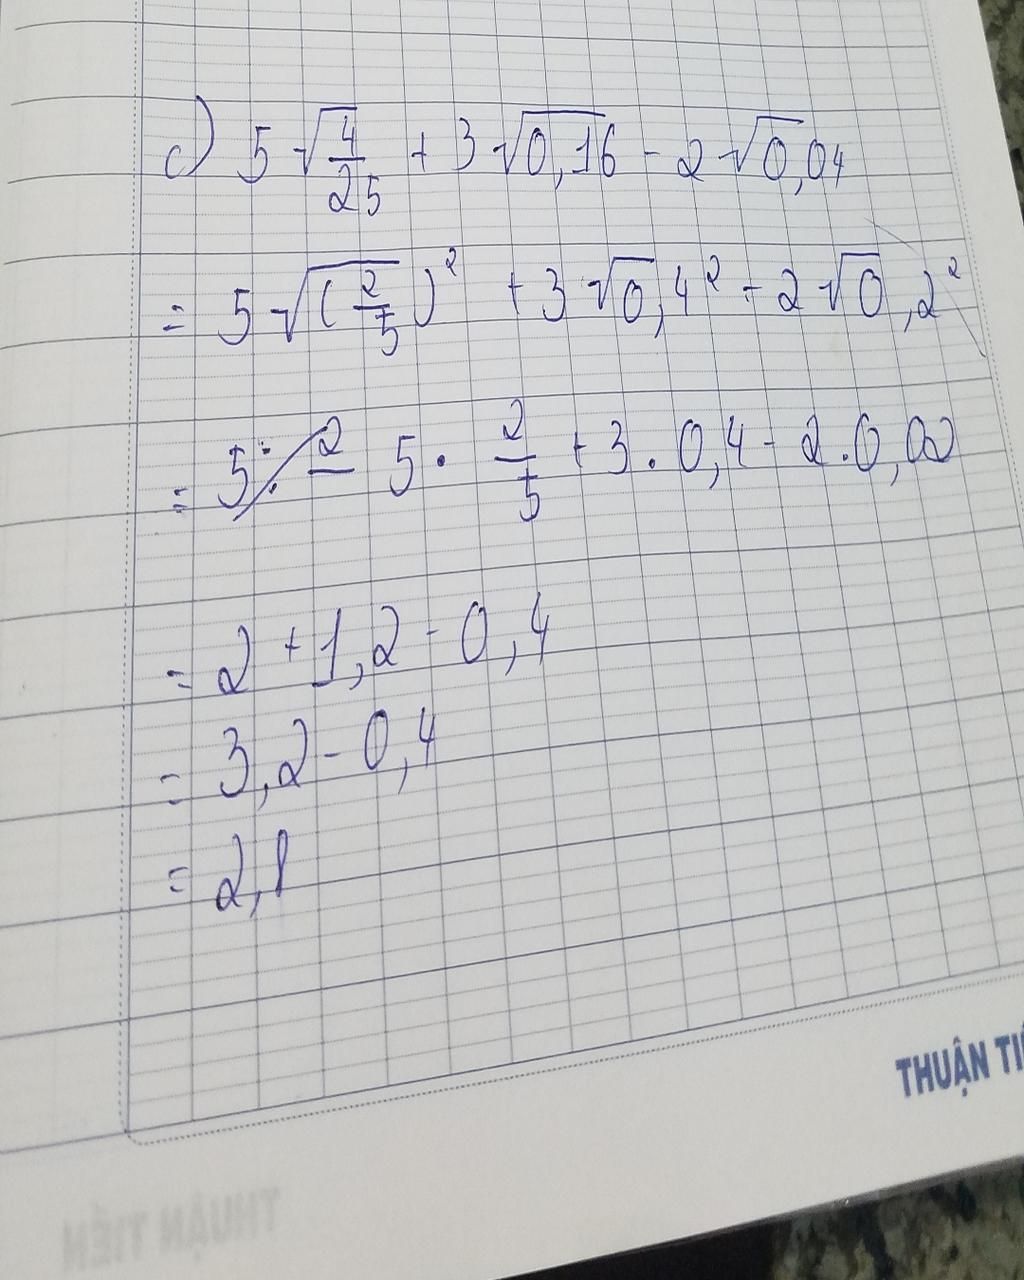 c) 5√(4/25) + 3√0,16 - 2√0,04
= 5√(2/5)² + 3√0,4² - 2√0,2²
= 5 · 2/5 + 3 . 0,4 - 2 . 0,
= 2 + 1,2 - 0,4
= 3,2 - 0,4
= 2,8
THUẬN TIẾ
THUẬN TIẾN